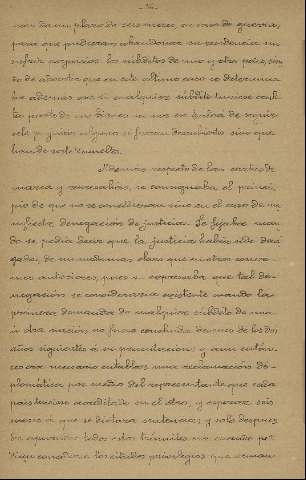 se daria un plazo de seis meses, en caso de guerra,
para que pudieran abandonar su residencia sin
sufrir perjuicios los súbditos de uno y otro país, sien
do de advertir que en este último caso se determina
ba ademas que si cualquiera súbdito tuviese ocul
ta parte de sus bienes no nos
se le ni
han de serle devuelta.
Ademas respecto de las cartas de
marca y represalias, se consignaba el princi
pio de que no se concediesen sino en el caso de ma
nifiesta denegación de justicia. Se fijaba cuan
do se podia decir que la justicia habia sido dene
gada, de un modo mas claro que nuestros conve
nios anteriores, pues se expresaba que tal de
negación se consideraria existente cuando la
primera demanda de cualquier súbdito de una
ú otra nación no fuese concluida dentro de los dos
años siguientes á su presentacion; y aun enton
ces era necesario entablar una reclamación di
plomática por medio del representante que cada
pais tuviese acreditado en el otro, y esperar seis
meses á que se dictara sentencia; y solo despues
de apurados todos estos trámites era cuando po
dian concederse los citados privilegios que